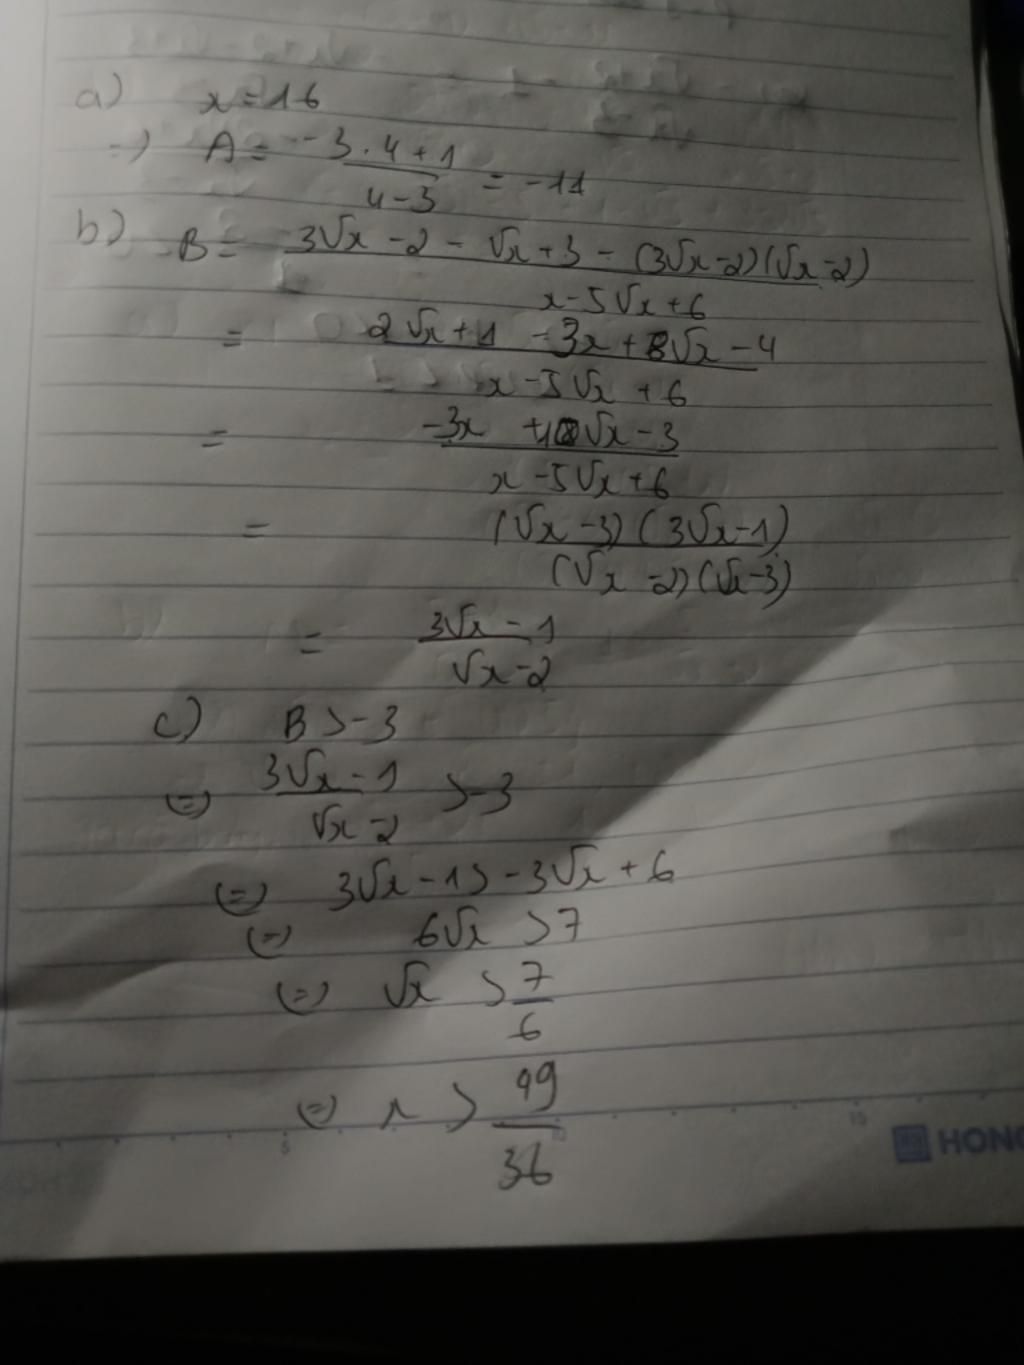 a) x = 16
=) A = -3.4+1 / 4-3 = -11
b) B = 3√x - 2 - √x + 3 - (3√x-2)(√x-2) / x - 5√x + 6
= 2√x + 1 - 3x + 8√x - 4 / x - 5√x + 6
= -3x + 10√x - 3 / x - 5√x + 6
= (√x - 3)(3√x - 1) / (√x - 2)(√x - 3)
= 3√x - 1 / √x - 2
c) B > -3
(=) 3√x - 1 / √x - 2 > -3
(=) 3√x - 1 > -3√x + 6
(=) 6√x > 7
(=) √x > 7/6
(=) x > 49/36
5 10 15
HONG